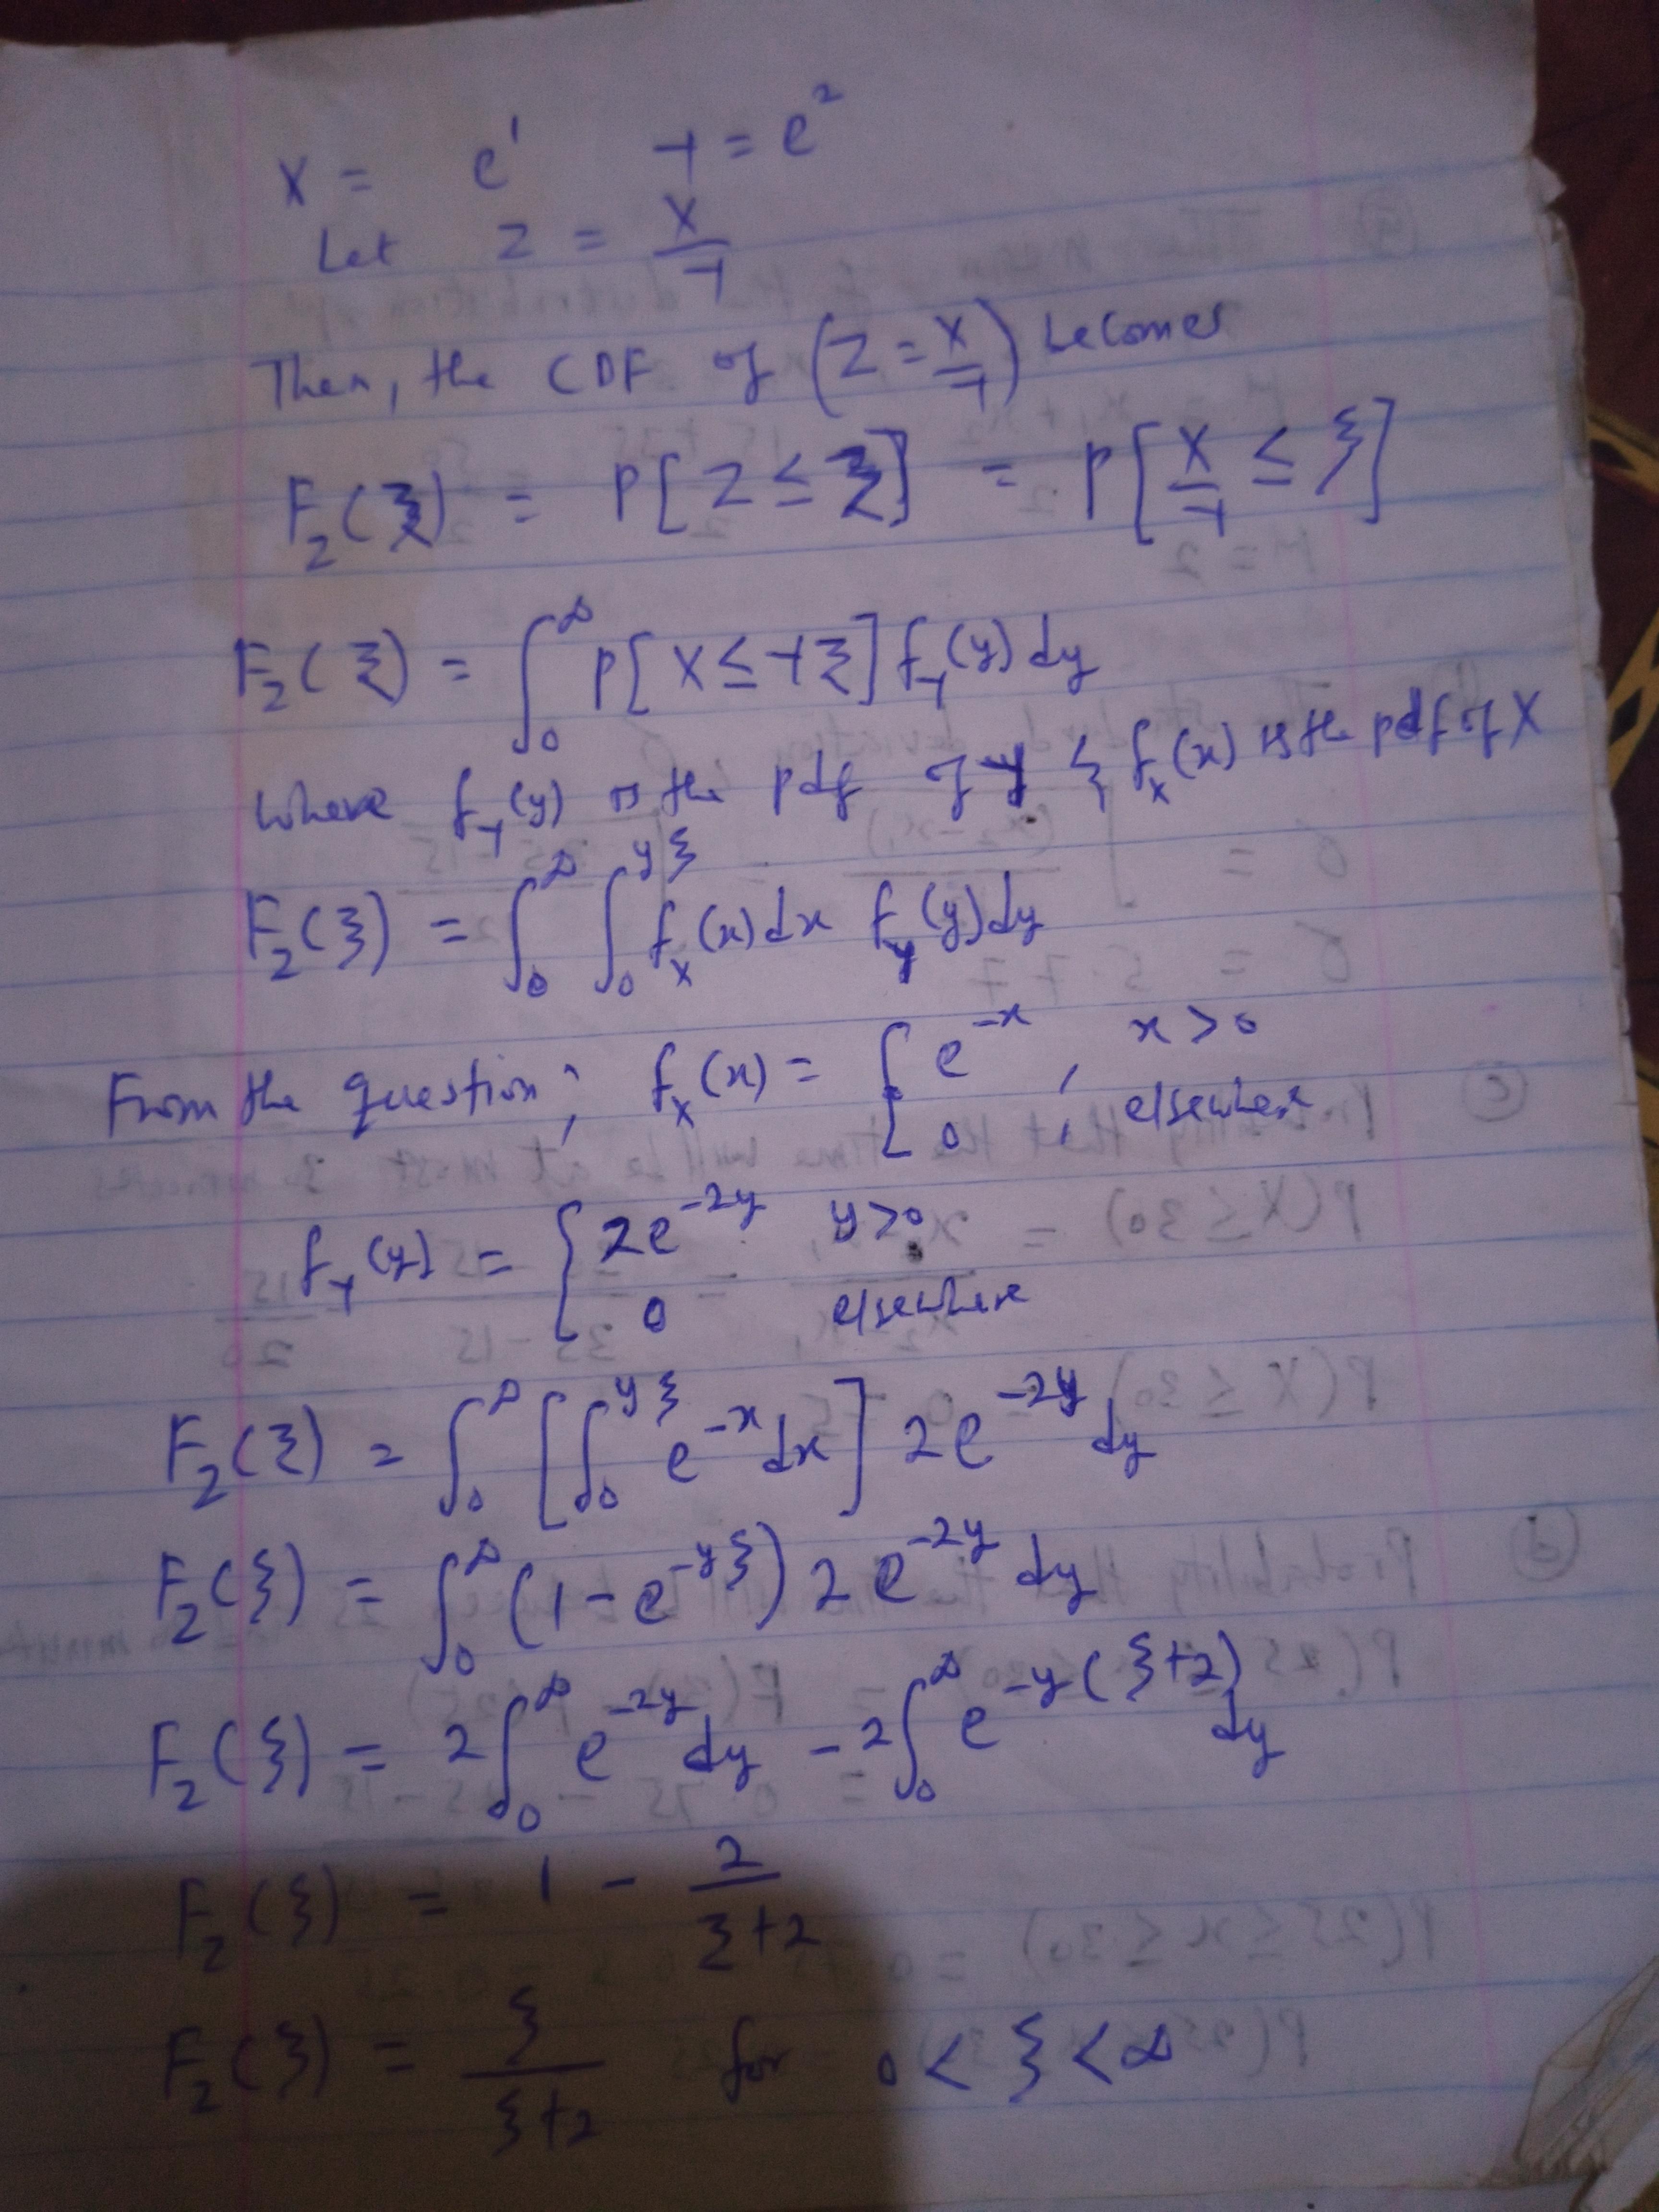 X = e¹   Y = e²
Let Z = X/Y
Then, the CDF of (Z = X/Y) becomes
F_Z(ξ) = P[Z ≤ ξ] = P[X/Y ≤ ξ]
F_Z(ξ) = ∫₀^∞ P[X ≤ Yξ] f_Y(y) dy
where f_Y(y) is the pdf of y & f_X(x) is the pdf of X
F_Z(ξ) = ∫₀^∞ ∫₀^{yξ} f_X(x) dx f_Y(y) dy
From the question; f_X(x) = { e^{-x}, x > 0
0, elsewhere
f_Y(y) = { 2e^{-2y} y > 0
0 elsewhere
F_Z(ξ) = ∫₀^∞ [∫₀^{yξ} e^{-x} dx] 2e^{-2y} dy
F_Z(ξ) = ∫₀^∞ (1 - e^{-yξ}) 2e^{-2y} dy
F_Z(ξ) = 2∫₀^∞ e^{-2y} dy - 2∫₀^∞ e^{-y(ξ+2)} dy
F_Z(ξ) = 1 - 2/(ξ+2)
F_Z(ξ) = ξ/(ξ+2) for 0 < ξ < ∞